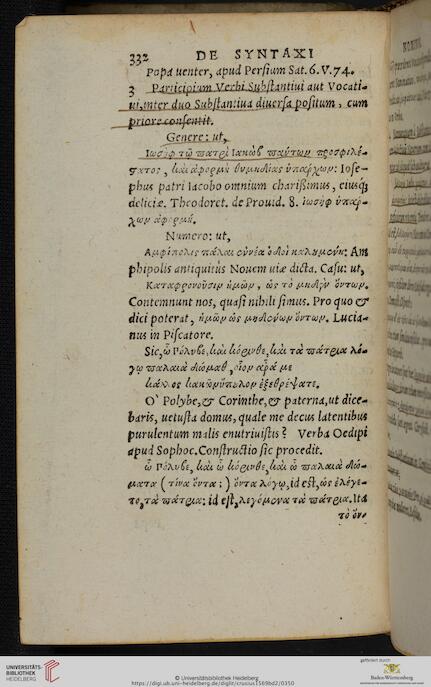 332 DE SYNTAXI
Popa uenter, apud Persium Sat. 6. V. 74.
3 Participium Verbi Substantiui aut Vocati-
ui, inter duo Substantiua diuersa positum, cum
priore consentit.
Genere: ut,
Ἰωσὴφ τῷ πατρὶ Ἰακὼβ πάντων προσφιλέ-
στατος, καὶ ἀφορμὴ θυμηδίας ὑπάρχων: Iose-
phus patri Iacobo omnium charißimus, eiusq́;
deliciæ. Theodoret. de Prouid. 8. ἰωσὴφ ὑπάρ-
χων ἀφορμή.
Numero: ut,
Ἀμφίπολις πάλαι ἐννέα ὁδοὶ καλούμενον: Am
phipolis antiquitùs Nouem uiæ dicta. Casu: ut,
Καταφρονοῦσιν ἡμῶν, ὡς τὸ μηδὲν ὄντων.
Contemnunt nos, quasi nihili simus. Pro quo &
dici poterat, ἡμῶν ὡς μηδένων ὄντων. Lucia-
nus in Piscatore.
Sic, ὦ Πόλυβε, καὶ κόρινθε, καὶ τὰ πάτρια λό-
γῳ παλαιὰ δώμαθ', οἷον ἆρά με
κάλλος κακῶν ὕπουλον ἐξεθρέψατε.
O' Polybe, & Corinthe, & paterna, ut dice-
baris, uetusta domus, quale me decus latentibus
purulentum malis enutriuistis? Verba Oedipi
apud Sophoc. Constructio sic procedit.
ὦ Πόλυβε, καὶ ὦ κόρινθε, καὶ ὦ παλαιὰ δώ-
ματα (τίνα ὄντα;) ὄντα λόγῳ, id est, ὡς ἐλέγε-
το, τὰ πάτρια: id est, λεγόμενα τὰ πάτρια. Ita
τὸ ὄν-
UNIVERSITÄTS-
BIBLIOTHEK
HEIDELBERG
© Universitätsbibliothek Heidelberg
https://digi.ub.uni-heidelberg.de/diglit/crusius1569bd2/0350
gefördert durch
Baden-Württemberg